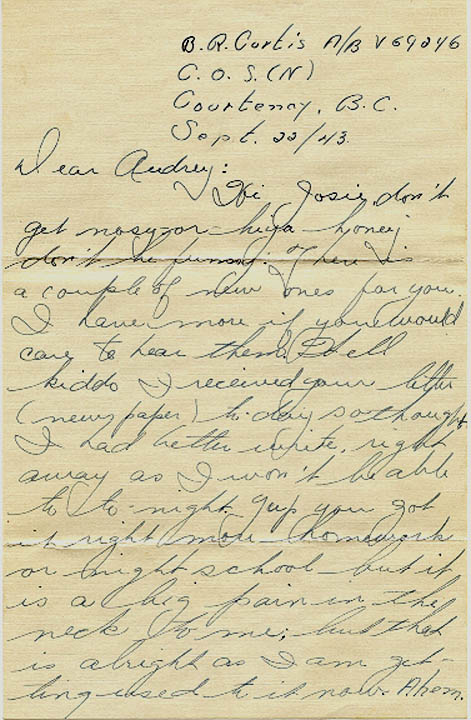 B.R. Curtis A/B V69246
C.O.S.(N)
Courtenay, B.C.
Sept. 22/43.
Dear Audrey:
Hi Josie, don't
get nosy-or-hiya-honey
don't be funny. There is
a couple of new ones for you.
I have more if you would
care to hear them. Well
kiddo I received your letter
(newspaper) to-day so thought
I had better write, right
away as I won't be able
to to-night. Yup you got
it right more homework
or night school-but it
is a big pain in the
neck to me; but that
is alright as I am get-
ting used to it now. Ahem.